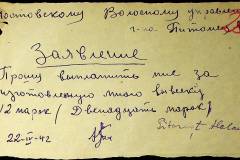 Волостному управлен
г-на Питоми
Заявление
Прошу выплатить мне за
изготовленную мною вывеску
12 марок / Двенадцать марок /
22-IV-42